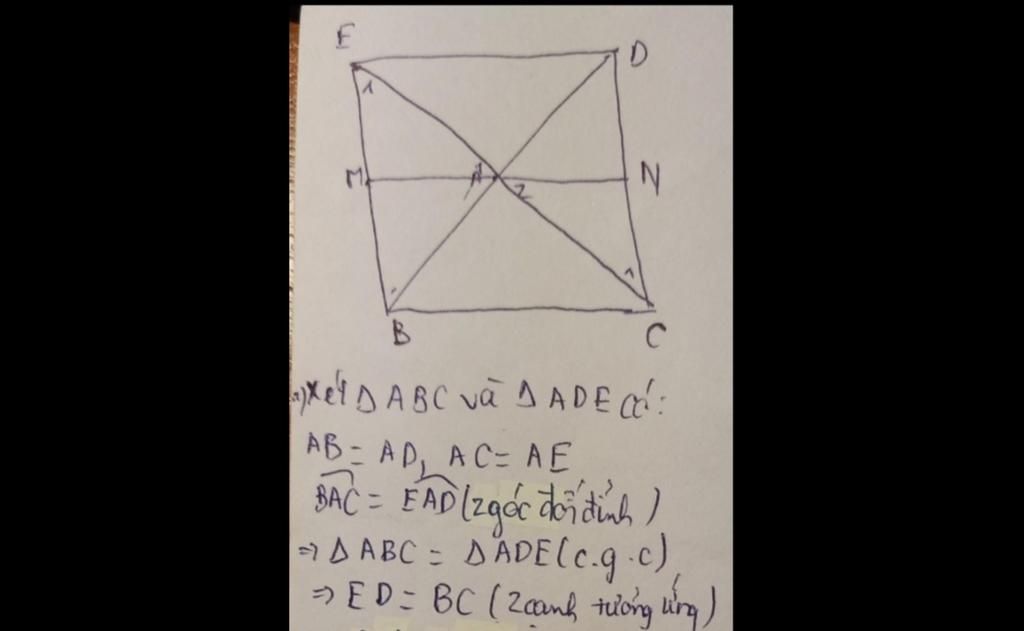 E
D
1
M
A
N
2
1
B
C
a) Xét Δ ABC và Δ ADE có:
AB = AD, AC = AE
BAC = EAD (2 góc đối đỉnh)
=> Δ ABC = Δ ADE (c.g.c)
=> ED = BC (2 cạnh tương ứng)